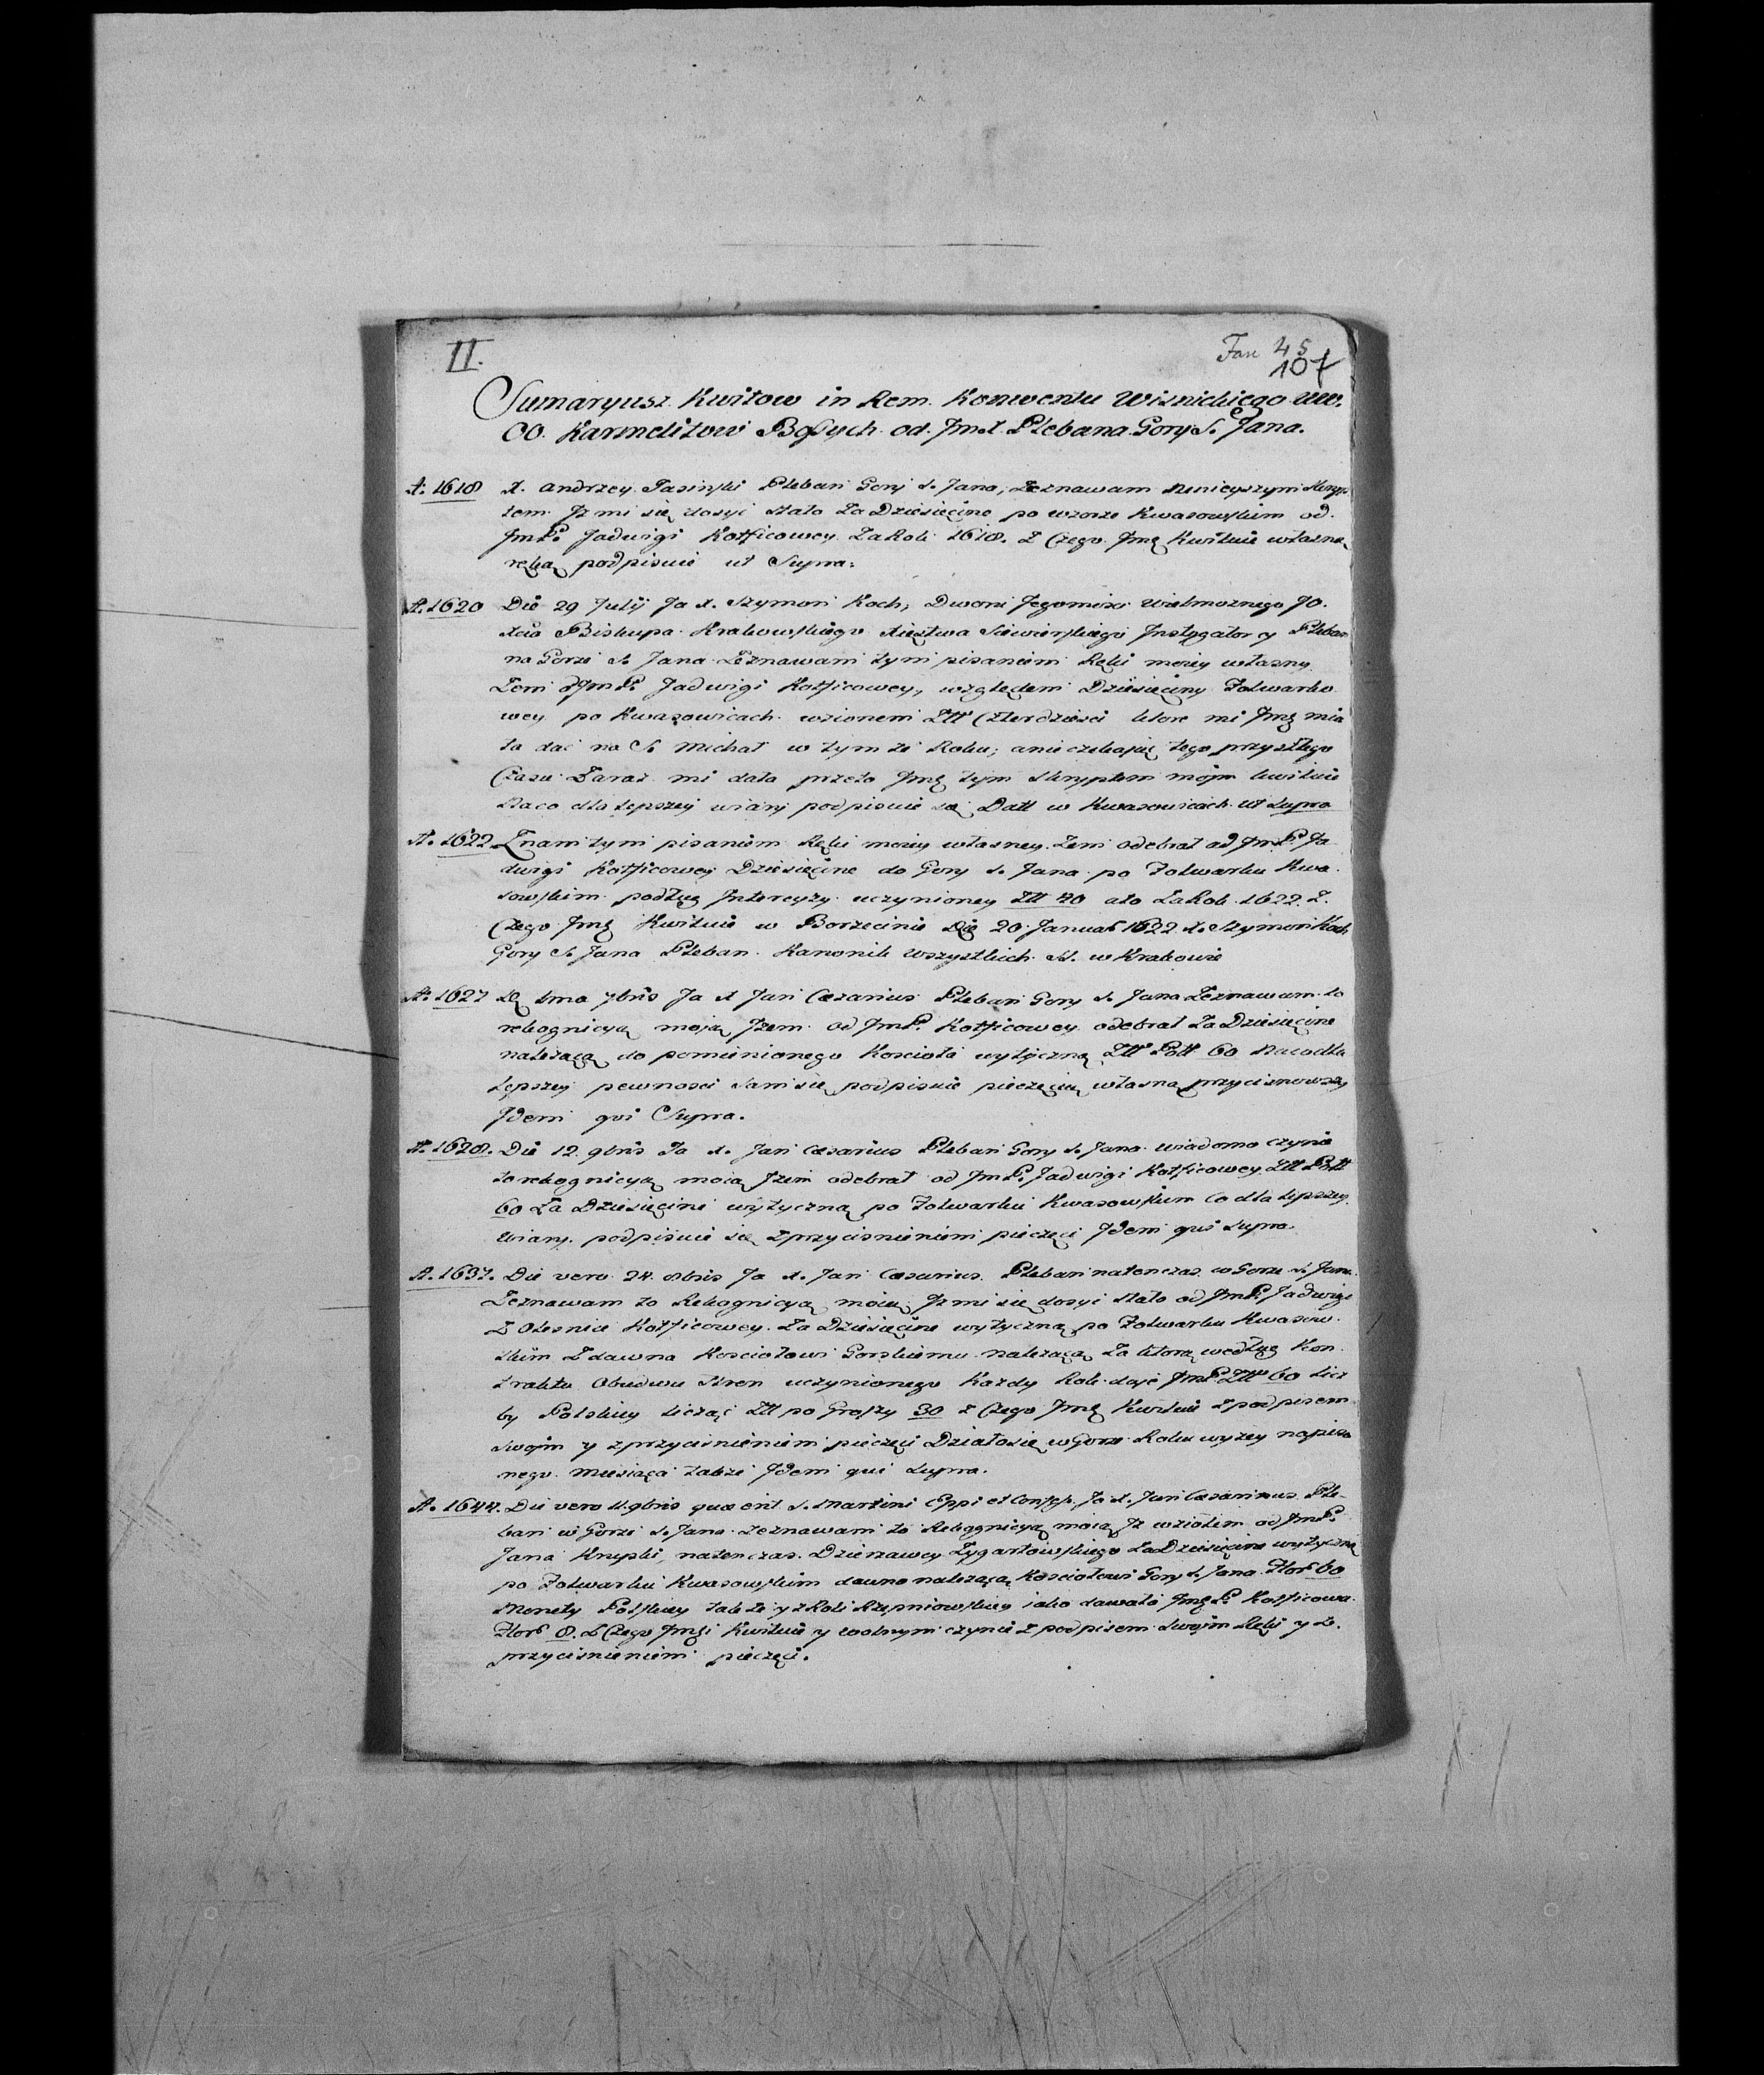 II.
Fasc 45
107
Sumaryusz Kwitow in Rem. Konwentu Wisnickiego WW.
OO. Karmelitow Bosych od JmX. Plebana Gory S. Jana.
A. 1618 X. Andrzey Jasinski Pleban Gory S. Jana, Zeznawam ninieyszym Skryp
tem Jz mi się dosyć stało Za Dziesięcine po wzorze Kwasowskim od
JmP. Jadwigi Kotficowey Za Rok 1618. Z Czego Jmę Kwituie własną
ręką podpisuie ut Supra.
A. 1620 Die 29 Julij Ja X. Szymon Koch, Dworu Jegomści Wielmoznego JO.
Xcia Biskupa Krakowskiego Xięztwa Siewierskiego Instygator y Pleban
na Gorze S. Jana Zeznawam tym pisaniem Ręki moiey własny
Zem od JmP. Jadwigi Kotficowey, względem Dziesięciny Folwarko
wey po Kwasowicach wzionem Złł Czterdziesci ktore mi Jmę mia
ła dać na S. Michał w tym ze Roku, anie czekając tego przyszłego
Czasu Zaraz mi dała przeto Jmę tym Skryptem moim kwituie
Naco dla lepszey wiary podpisuie się Datt w Kwasowicach ut Supra
A. 1622 Znam tym pisaniem Ręki moiey własney Zem odebrał od JmP. Ja
dwigi Kotficowey Dziesięcine do Gory S. Jana po Folwarku Kwa
sowskim podług Intercyzy uczynioney Złł 40 ato Za Rok 1622. Z
Czego Jmę Kwituie w Borzecinie Die 20 Januar 1622 X. Szymon Koch
Gory S. Jana Pleban Kanonik Wszystkich SS. w Krakowie
A. 1627 Die 1ma 7bris Ja X Jan Cæsarius Pleban Gory S. Jana Zeznawam tą
rekognicyą moią Jzem od JmP. Kotficowey odebrał Za Dziesięcine
nalezącą do pomienionego Kościoła wytyczną Złł Poll 60 Naco dla
lepszey pewnosci sam się podpisuie pieczęcią własną przycisnowszy
Idem qui Supra.
A. 1628. Die 12. 9bris Ja X. Jan Cæsarius Pleban Gory S. Jana wiadomo czynie
tą rekognicyą moią Jzem odebrał od JmP. Jadwigi Kotficowey Złł Poll
60 Za Dziesięcine wytyczną po Folwarku Kwasowskim Co dla lepszey
wiary podpisuie się Zprzycisnieniem pieczęci Idem qui Supra.
A. 1637. Die vero 24. 8bris Ja X. Jan Cæsarius Pleban natenczas w Gorze S. Jana
Zeznawam tą Rekognicyą moią, Jz mi się dosyć stało od JmP. Jadwigi
Z Olesnice Kotficowey Za Dziesięcine wytyczną po Folwarku Kwasow
skim Zdawna Kosciołowi Gorskiemu nalezącą Za ktorą według Kon
traktu Obudwu Stron uczynionego Kazdy Rok daje JmP. Złł 60 Licz
by Polskiey licząc Złł po Groszy 30 z Czego Jmę Kwituie zpodpisem
swoim y zprzycisnieniem pieczęci Działo się w Gorze Roku wyzey napisa
nego miesiąca takze Idem qui Supra.
A. 1644. Die vero 11 9bris quæ erit S. Martini Eppi et Confess. Ja X. Jan Cæsarius Ple-
ban w Gorze S. Jana zeznawam tą Rekognicyą moią Jz wziołem od JmP.
Jana Krupki, natenczas Dzierzawcy Zygartowskiego Za Dziesięcine wytyczną
po Folwarku Kwasowskim dawno nalezącą Kosciołowi Gory S. Jana Flor 60
Monety Polskiey takze y z Roli Rzepniowskiey iako dawała JmęP. Kotficowa
Flor 8. Z Czego Jmęi Kwituie y wolnym czynie z podpisem swoim Ręki y z
przycisnieniem pieczęci.